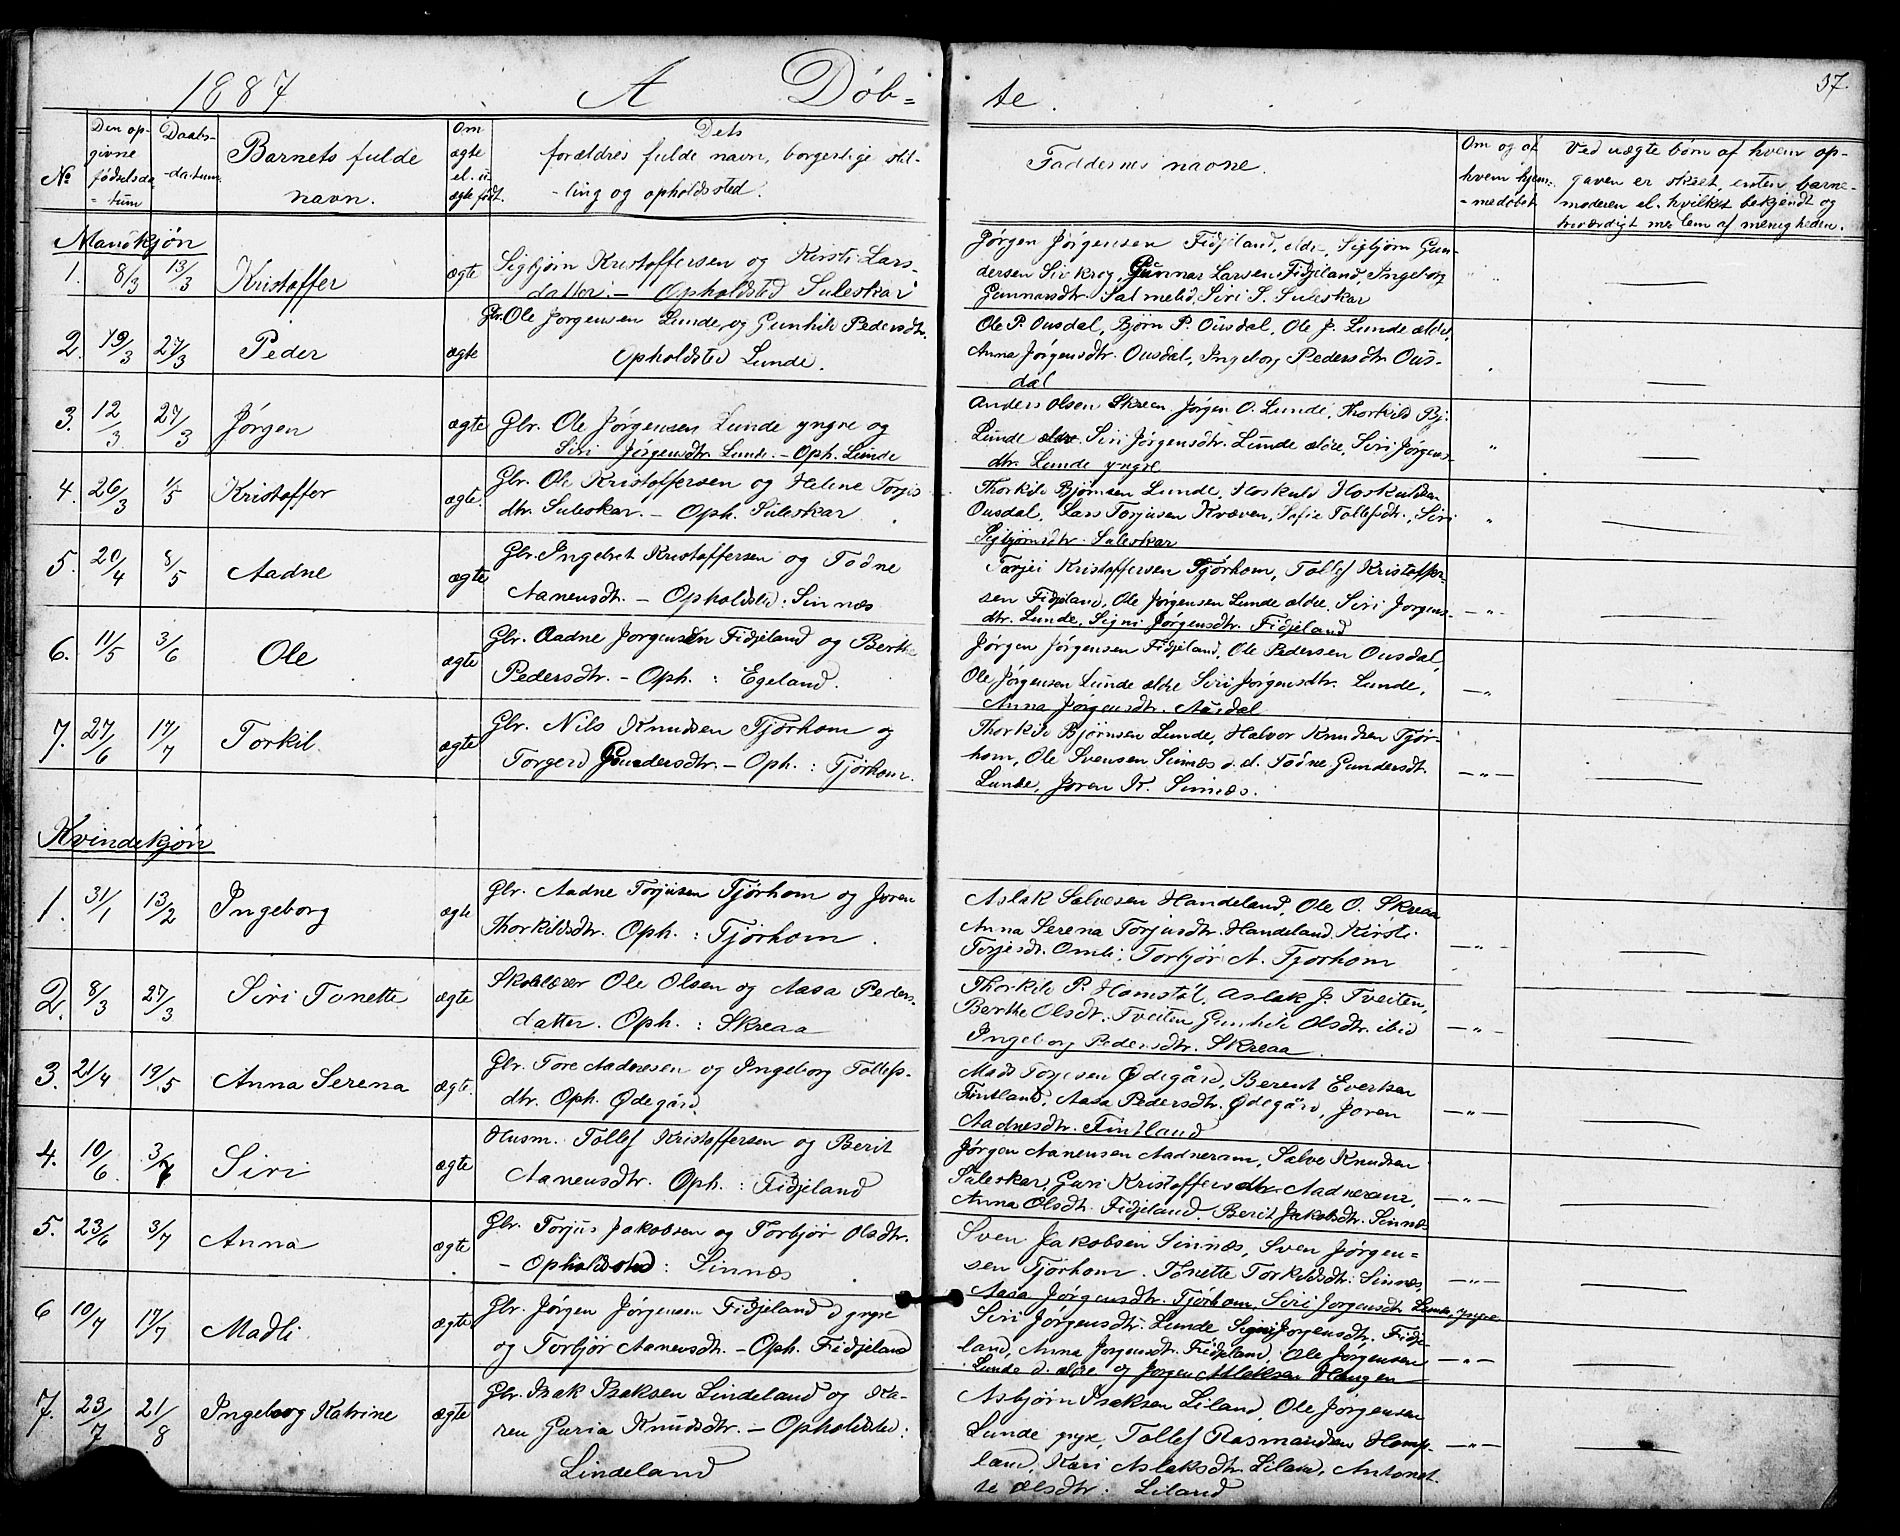 1887 A Døb= te. 37.
No
Den op-
givne
fødselsda
= tum
Daabs-
-datum.
Barnets fulde
navn.
Om
ægte
el. u-
ægte født.
Dets
forældres fulde navn, borgerlige stil-
- ling og opholdssted.
Faddernes navne.
Om og af
hvem hjem-
= medøbt
Ved uægte børn af hvem op-
gaven er skeet, enten barne-
moderen el. hvilket bekjendt og
troværdigt medlem af menigheden.
Mandkjøn
1. 8/3 13/3 Kristoffer ægte
Sigbjørn Kristoffersen og Kirsti Lars-
datter. - Opholdsted Suleskar
Jørgen Jørgensen Fidjeland, eldre, Sigbjørn Gun-
dersen Sirekrog, Gunnar Larsen Fidjeland, Ingeborg
Gunnarsdtr. Salmelid, Siri S. Suleskar
2. 19/3 27/3 Peder ægte
Gbr. Ole Jørgensen Lunde, og Gunhild Pedersdtr.
Opholdsted Lunde.
Ole P. Ousdal, Bjørn P. Ousdal, Ole J. Lunde ældre,
Anna Jørgensdtr. Ousdal, Ingeborg Pedersdtr Ous-
dal
3. 12/3 27/3 Jørgen ægte
Gbr. Ole Jørgensen Lunde yngre og
Siri Jørgensdtr. Lunde. - Oph. Lunde
Anders Olsen Skreen Jørgen O. Lunde, Thorkild Bj.
Lunde ældre. Siri Jørgensdtr. Lunde ældre, Siri Jørgens-
dtr. Lunde yngre
4. 26/3 1/5 Kristoffer ægte.
Gbr. Ole Kristoffersen og Helene Torjis
dtr. Suleskar. - Oph. Suleskar.
Thorkild Bjørnsen Lunde, Hoskuld Hoskuldsen
Ousdal, Lars Torjusen Kvæven, Sofie Tollefsdtr., Siri
Sigbjørnsdtr. Suleskar
5. 20/4 8/5 Aadne ægte
Gbr. Ingebret Kristoffersen og Todne
Aanensdtr. - Opholdsted: Sinnæs
Tarjei Kristoffersen Tjørhom, Tollef Kristoffer-
sen Fidjeland, Ole Jørgensen Lunde ældre, Siri Jørgens-
dtr. Lunde, Signi Jørgensdtr. Fidjeland
6. 11/5 3/6 Ole ægte
Gbr. Aadne Jørgensen Fidjeland og Berthe
Pedersdtr. - Oph. : Egeland.
Jørgen Jørgensen Fidjeland, Ole Pedersen Ousdal,
Ole Jørgensen Lunde ældre Siri Jørgensdtr. Lunde,
Anna Jørgensdtr. Ausdal
7. 27/6 17/7 Torkil. ægte
Gbr. Nils Knudsen Tjørhom og
Torgerd Gundersdtr. - Oph. : Tjørhom.
Thorkild Bjørnsen Lunde, Halvor Knudsen Tjør-
hom, Ole Svensen Sinnæs d. æ. Todne Gundersdt.
Lunde, Joren K. Sinnæs.
Kvindekjøn
1. 31/1 13/2 Ingeborg ægte
Gbr. Aadne Torjusen Tjørhom og Joren
Thorkildsdtr. Oph. : Tjørhom.
Aslak Salvesen Handeland, Ole O. Skreaa
Anna Serena Torjusdtr. Handeland. Kirsti
Torjesdtr. Omli, Torbjør A. Tjorhom
2. 8/3 27/3 Siri Tonette ægte
Skolelærer Ole Olsen og Aasa Peders-
datter. Oph. : Skreaa
Thorkild P. Homstøl, Aslak J. Tveiten,
Berthe Olsdt. Tveiten Gunhild Olsdtr. ibid
Ingeborg Pedersdtr. Skreaa.
3. 21/4 19/5 Anna Serena ægte.
Gbr. Tore Aadnesen og Ingeborg Tollefs-
dtr. Oph. Ødegård.
Mads Torjesen Ødegård, Berent Evertsen
Fintland, Aasa Pedersdtr. Ødegård, Joren
Aadnesdtr. Fintland
4. 10/6. 3/7 Siri ægte
Husm. Tollef Kristoffersen og Berit
Aanensdtr. Oph. : Fidjeland
Jørgen Aanensen Aadneram, Salve Knudsen
Suleskar, Guri Kristoffersdtr. Aadneram,
Anna Olsdt. Fidjeland. Berit Jakobsdtr. Sinnæs
5. 23/6 3/7 Anna ægte
Gbr. Torjus Jakobsen og Torbjør Olsdtr.
- Opholdsted : Sinnæs
Sven Jakobsen Sinnæs, Sven Jørgen=
sen Tjørhom. Tonette Torkildsdtr. Sinnæs,
Aasa Jørgensdtr. Tjørhom, Siri Jorgensdt. Lunde, yngre
6 10/7 17/7 Madli. ægte
Gbr. Jørgen Jørgensen Fidjeland d yngre
og Torbjør Aanensdtr. - Oph. Fidjeland
Siri Jørgensdtr. Lunde Signi Jorgensdtr. Fidje-
land, Anna Jorgensdt. Fidjeland. Ole Jørgensen
Lunde d. ældre og Jørgen Atlaksen Haugen
7. 23/7 21/8 Ingeborg Katrine ægte
Gbr. Isak Isaksen Lindeland og Ka-
ren Guria Knudsdtr. - Opholdsted:
Lindeland
Asbjørn Isaksen Liland, Ole Jørgensen
Lunde yngre, Tollef Rasmundsen Homp-
land, Kari Aslaksdtr. Liland, Antonet-
te Olsdtr. Liland